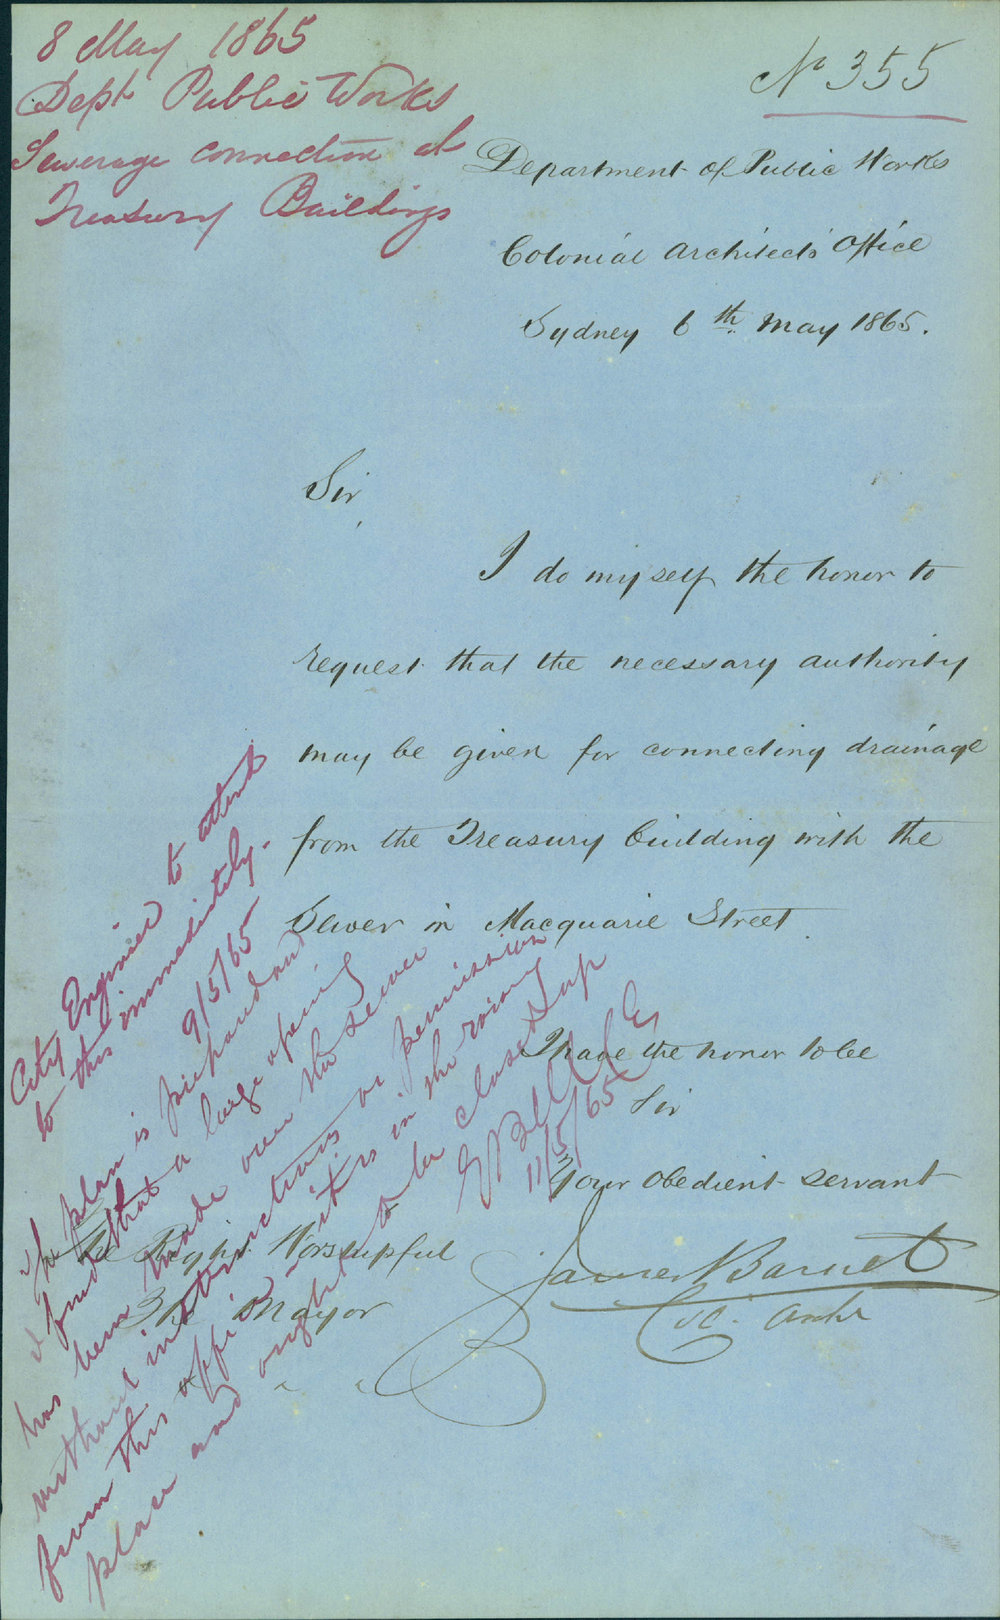 8 May 1865
Dept Public Works
Sewerage connection at
Treasury Buildings
No 355
Department of Public Works
Colonial Architects Office
Sydney 6th May 1865.
Sir,
I do myself the honor to
request that the necessary authority
may be given for connecting drainage
from the Treasury building with the
Sewer in Macquarie Street.
I have the honor to be
Sir
Your obedient servant
James Barnet
Col. Archt
The Right Worshipful
The Mayor
City Engineer to attend
to this immediately.
9/5/65
The plan is prepared and
I find that a large opening
has been made over the sewer
without instructions or permission
from this office it is in the wrong
place and ought to be closed up
E Bell C E
11/5/65